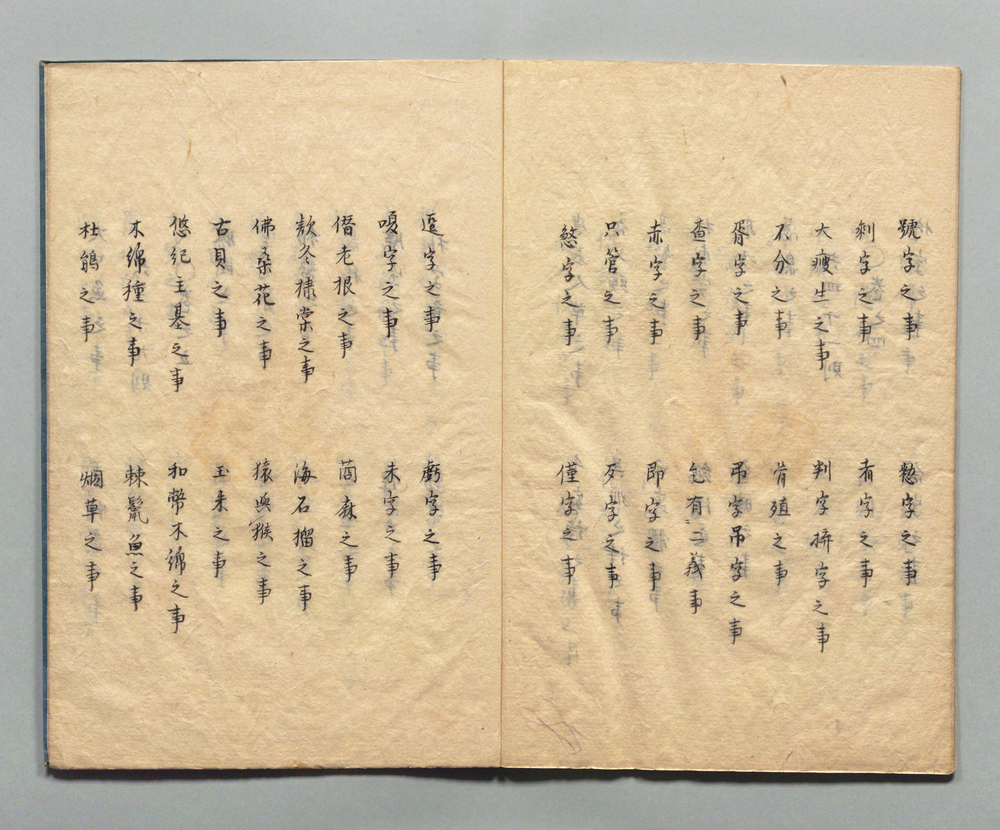 號字之事 字之事
剩字之事 者字之事
大瘦生之事 判字拚字之事
不分之事 肯殖之事
胥字之事 吊字吊字之事
査字之事 有二義事
赤字之事 即字之事
只管之事 歹字之事
字之事 僅字之事
逗字之事 虧字之事
嗄字之事 未字之事
老根之事 茼麻之事
款冬棣棠之事 海石榴之事
佛桑花之事 猿與猴之事
古貝之事 玉来之事
悠紀主基之事 和幣木綿之事
木綿種之事 棘鬣魚之事
杜鵑之事 烟草之事